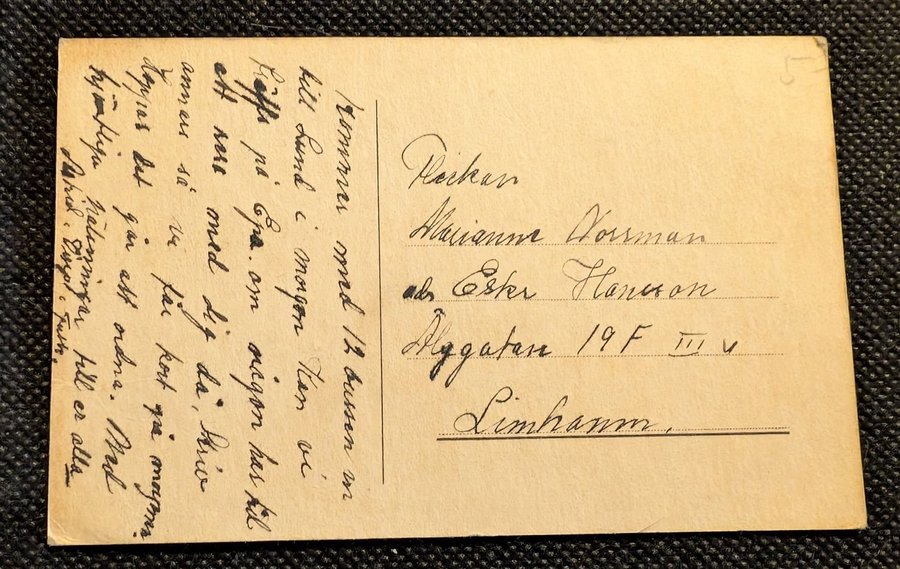 Kommer med 12 bussen in
till Lund i morgon Kan vi
träffs på Epa. om någon har tid
att vara med dig då. Skriv
annars så vi får kort på morgonen
Hoppas det går att ordna. Med
hjärtliga hälsningar till er alla
5
Flickan
Marianne Norrman
adr Esker Hansson
Älggatan 19 F III v
Limhamn.